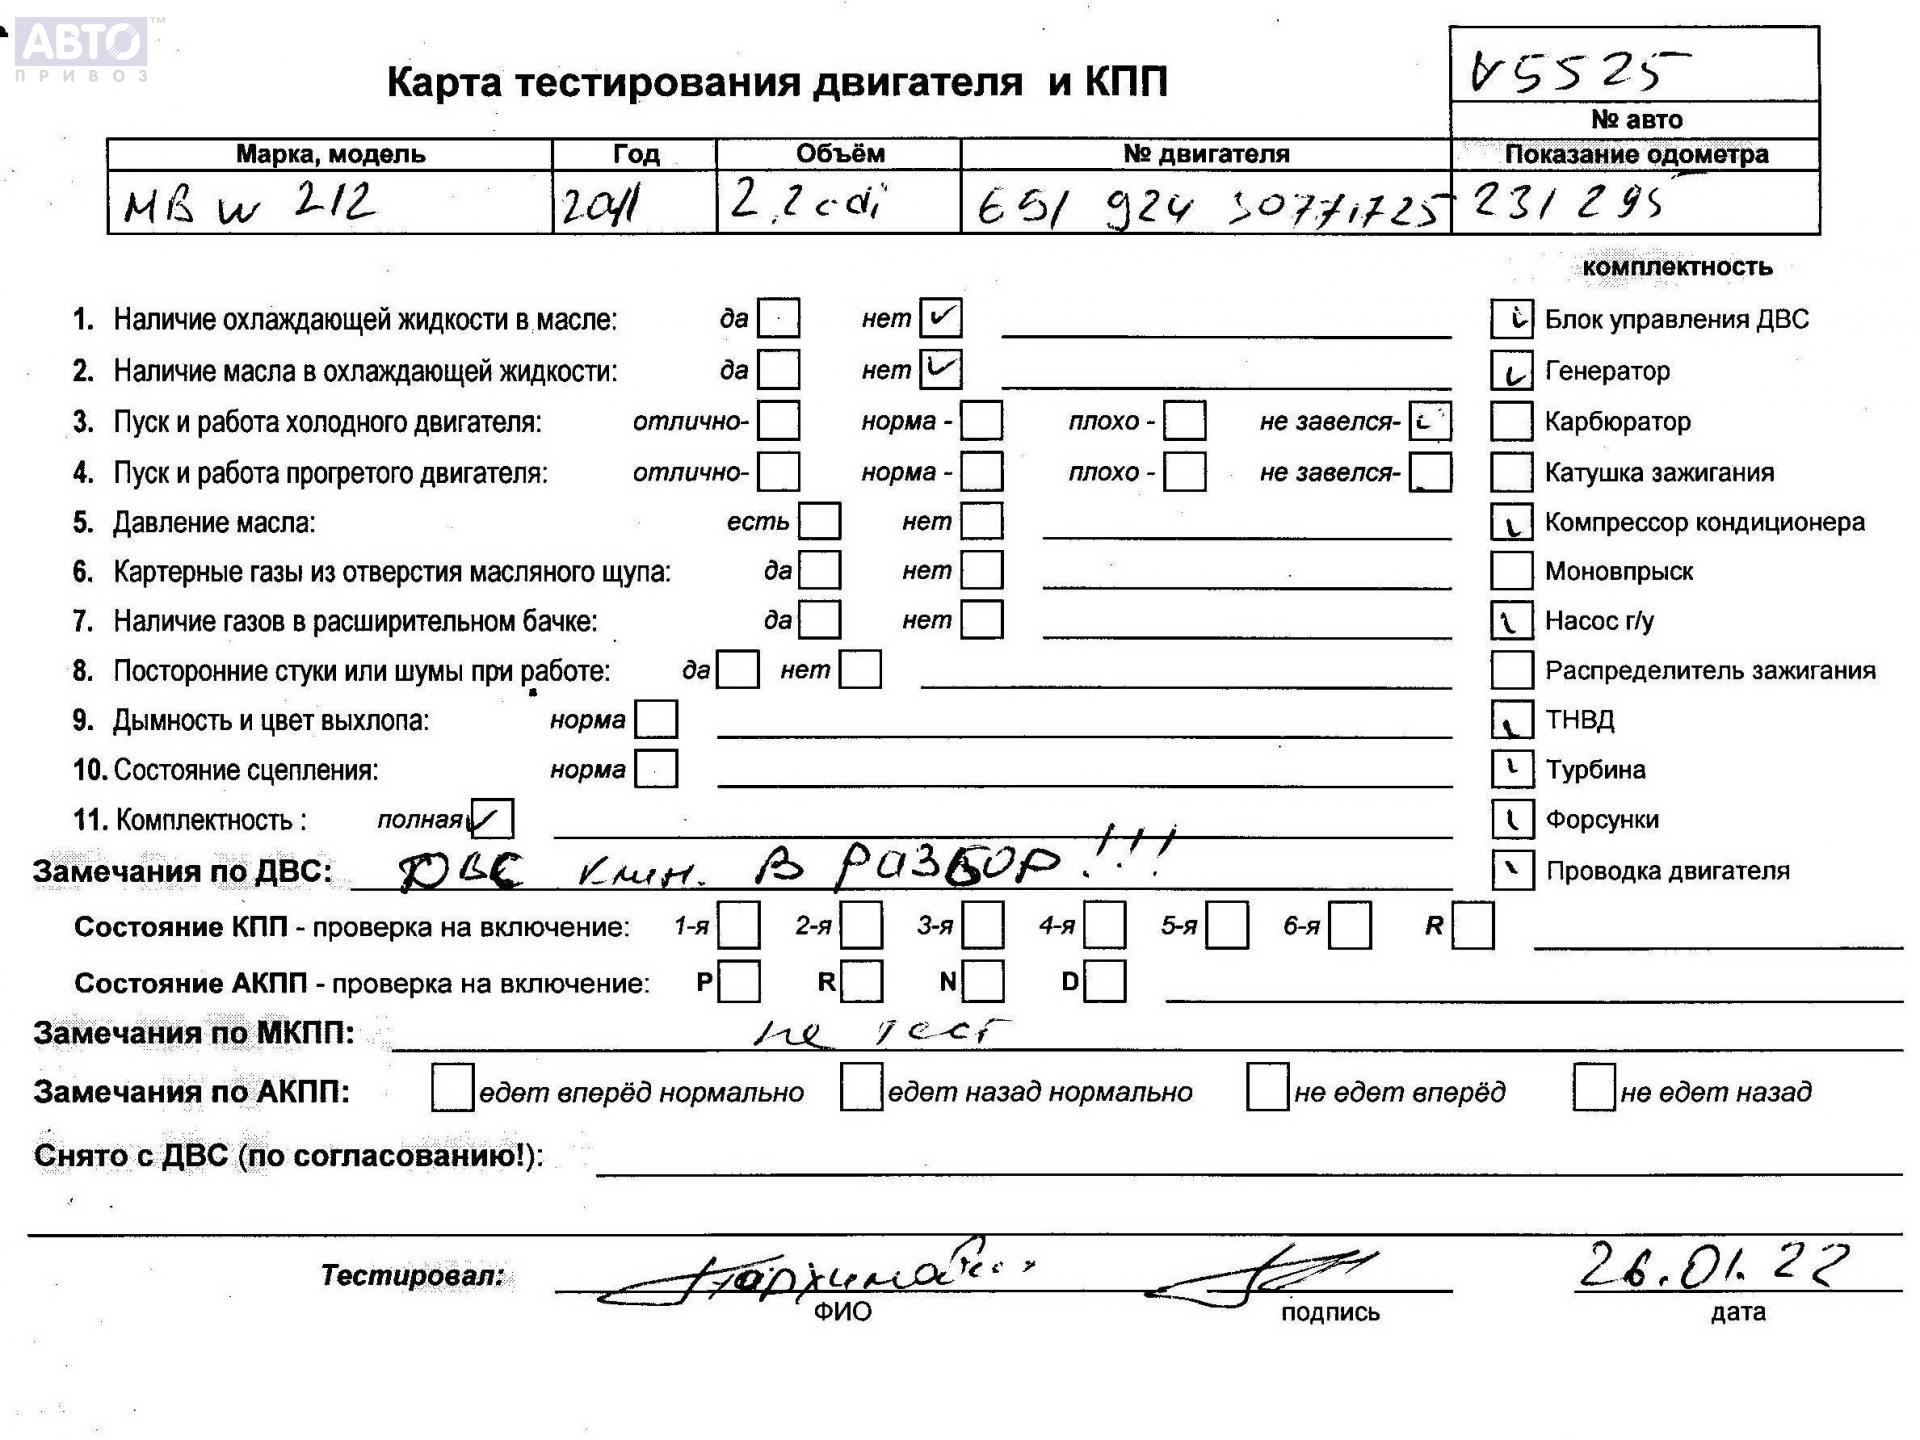 АВТО™
ПРИВОЗ
Карта тестирования двигателя и КПП
V5525
№ авто
Марка, модель Год Объём № двигателя Показание одометра
MB W 212 2011 2,2 cdi 651 924 30771725 231295
комплектность
1. Наличие охлаждающей жидкости в масле: да нет ✓ Блок управления ДВС
2. Наличие масла в охлаждающей жидкости: да нет ✓ Генератор
3. Пуск и работа холодного двигателя: отлично- норма - плохо - не завелся- Карбюратор
4. Пуск и работа прогретого двигателя: отлично- норма - плохо - не завелся- Катушка зажигания
5. Давление масла: есть нет Компрессор кондиционера
6. Картерные газы из отверстия масляного щупа: да нет Моновпрыск
7. Наличие газов в расширительном бачке: да нет Насос г/у
8. Посторонние стуки или шумы при работе: да нет Распределитель зажигания
9. Дымность и цвет выхлопа: норма ТНВД
10. Состояние сцепления: норма Турбина
11. Комплектность : полная ✓ Форсунки
Замечания по ДВС: ДВС клин. В РАЗБОР!!! Проводка двигателя
Состояние КПП - проверка на включение: 1-я 2-я 3-я 4-я 5-я 6-я R
Состояние АКПП - проверка на включение: P R N D
Замечания по МКПП: не тест
Замечания по АКПП: едет вперёд нормально едет назад нормально не едет вперёд не едет назад
Снято с ДВС (по согласованию!):
Тестировал: 26.01.22
ФИО подпись дата